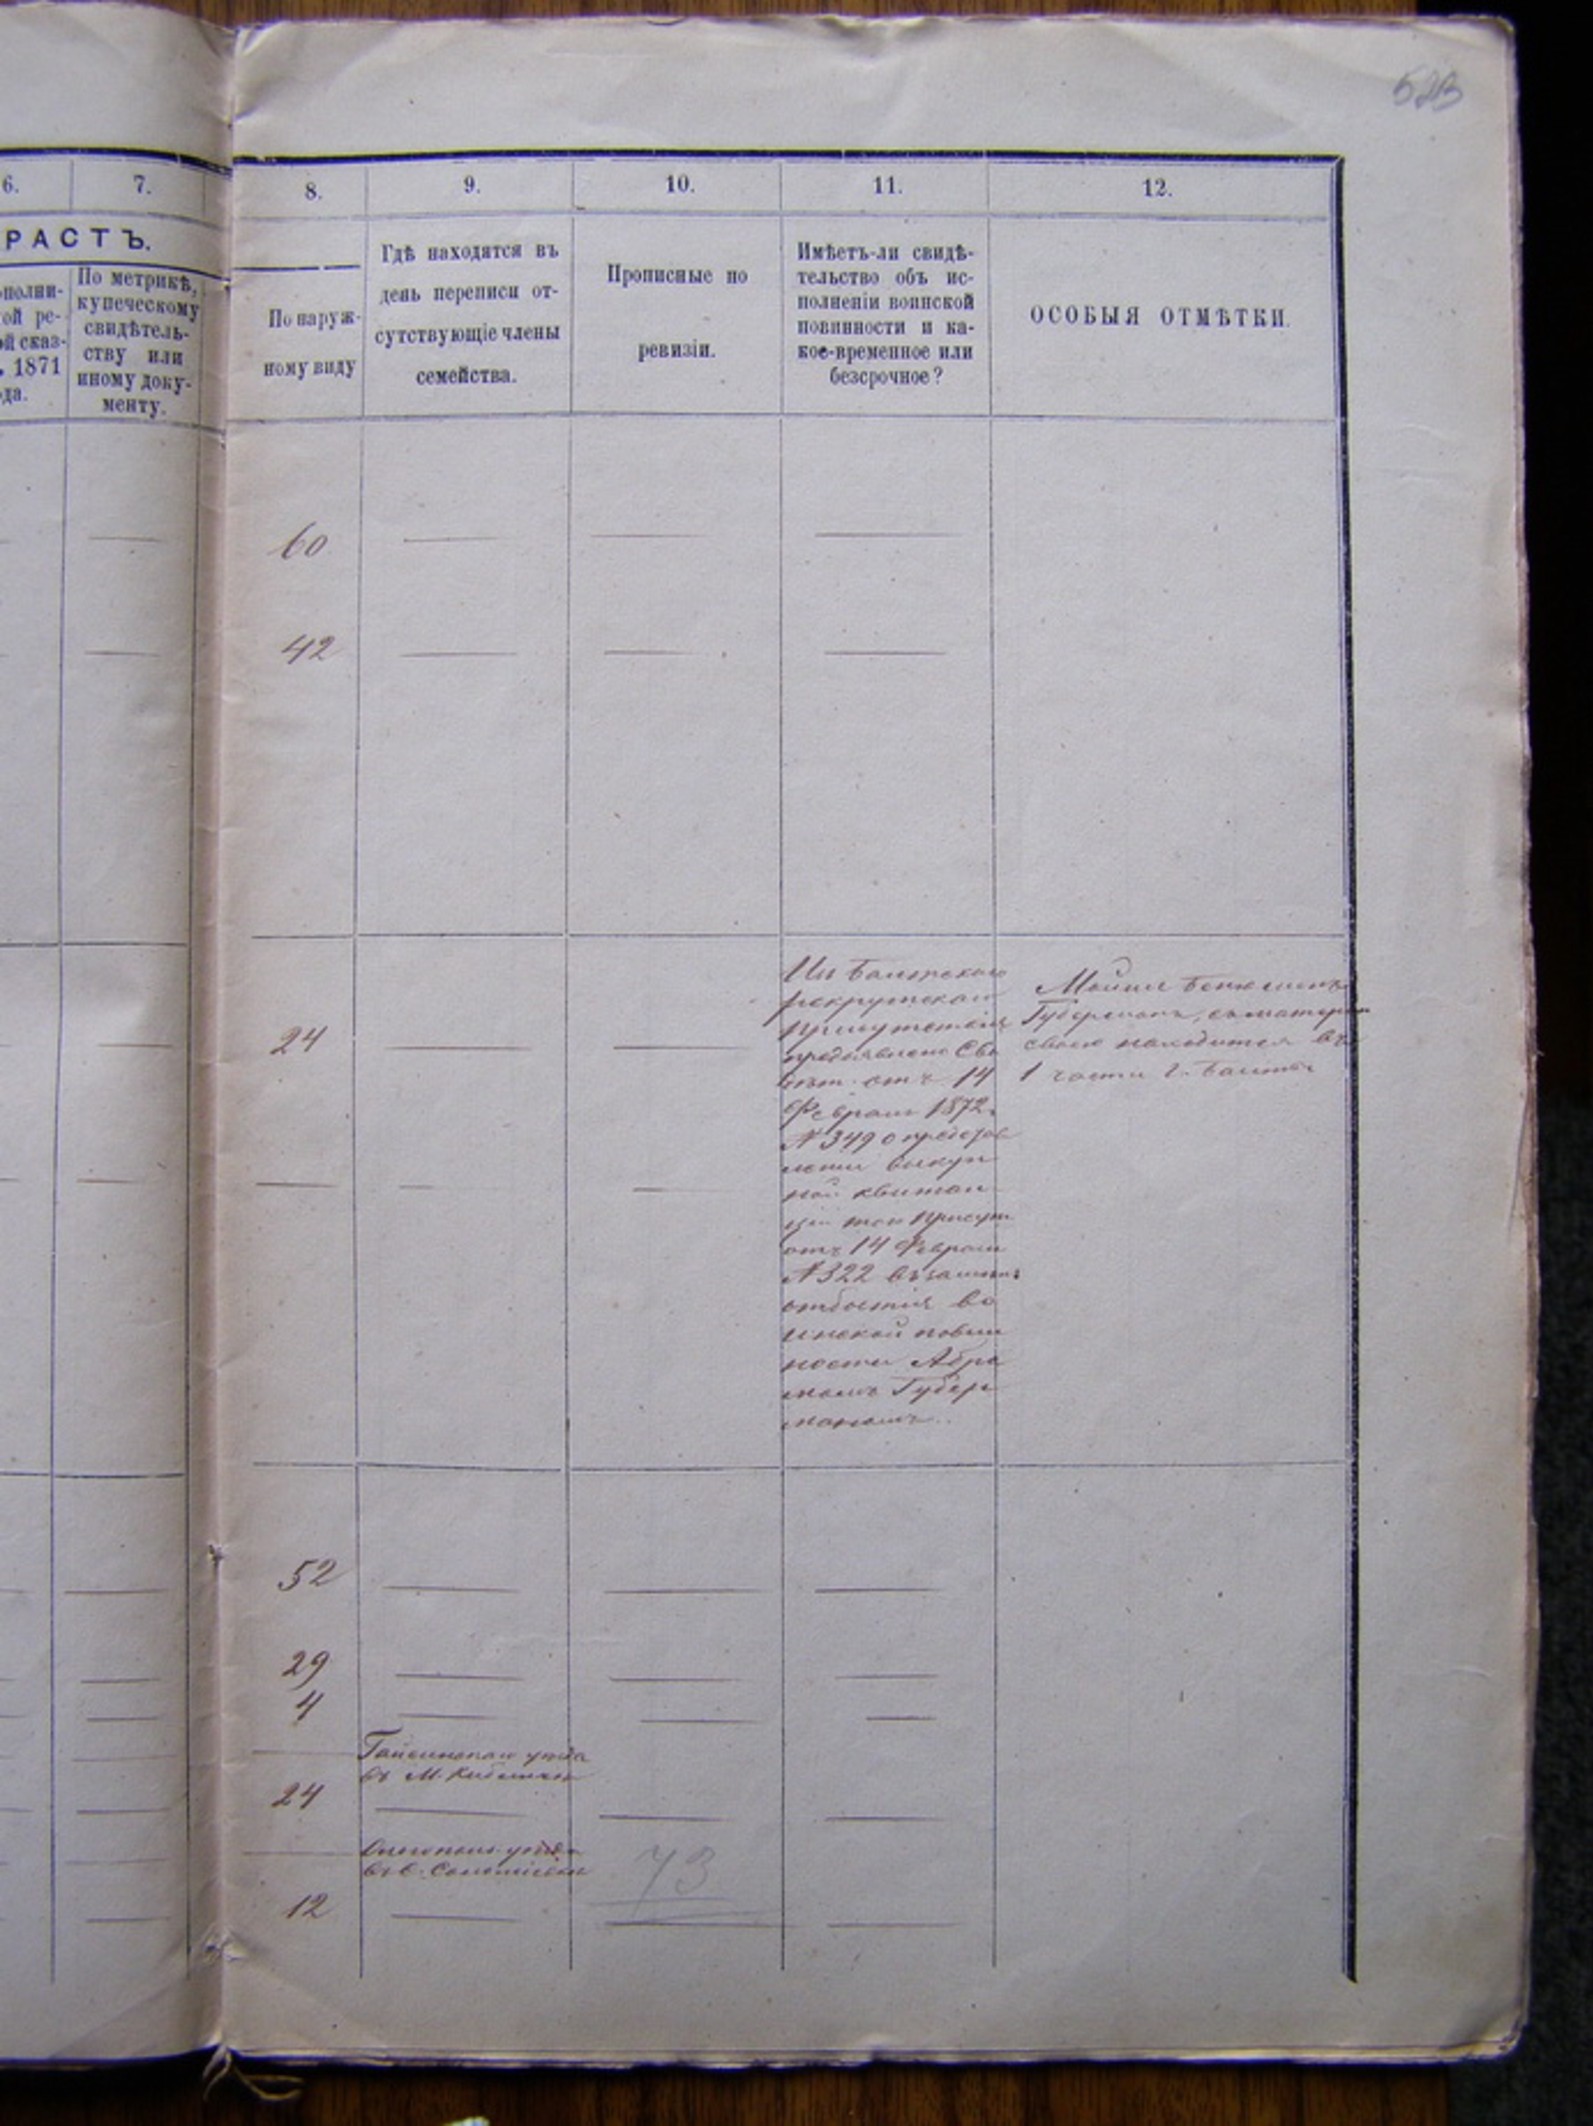 523
6.
7.
8.
9.
10.
11.
12.
РАСТЪ.
полни-
ой ре-
ой сказ-
1871
да.
По метрикѣ,
купеческому
свидѣтель-
ству или
иному доку-
менту.
По наруж-
ному виду
Гдѣ находятся въ
день переписи от-
сутствующіе члены
семейства.
Прописные по
ревизіи.
Имѣетъ-ли свидѣ-
тельство объ ис-
полненіи воинской
повинности и ка-
кое-временное или
безсрочное?
ОСОБЫЯ ОТМѢТКИ.
60
42
24
Изъ Балтскаго
рекрутскаго
присутствія
предъявлено Сви
дѣт. отъ 14
Февраля 1872
№ 349 о представ
леніи выкуп
ной квитан
ціи Присут
отъ 14 Февраля
№ 322
отбытія во
инской повин
ности Абра
момъ Губер
маномъ.
Губерманъ, съ матерью
своею находится въ
1 части г. Балты
52
29
4
Гайсинскаго уѣзда
въ М.
24
уѣзда
въ с.
73
12